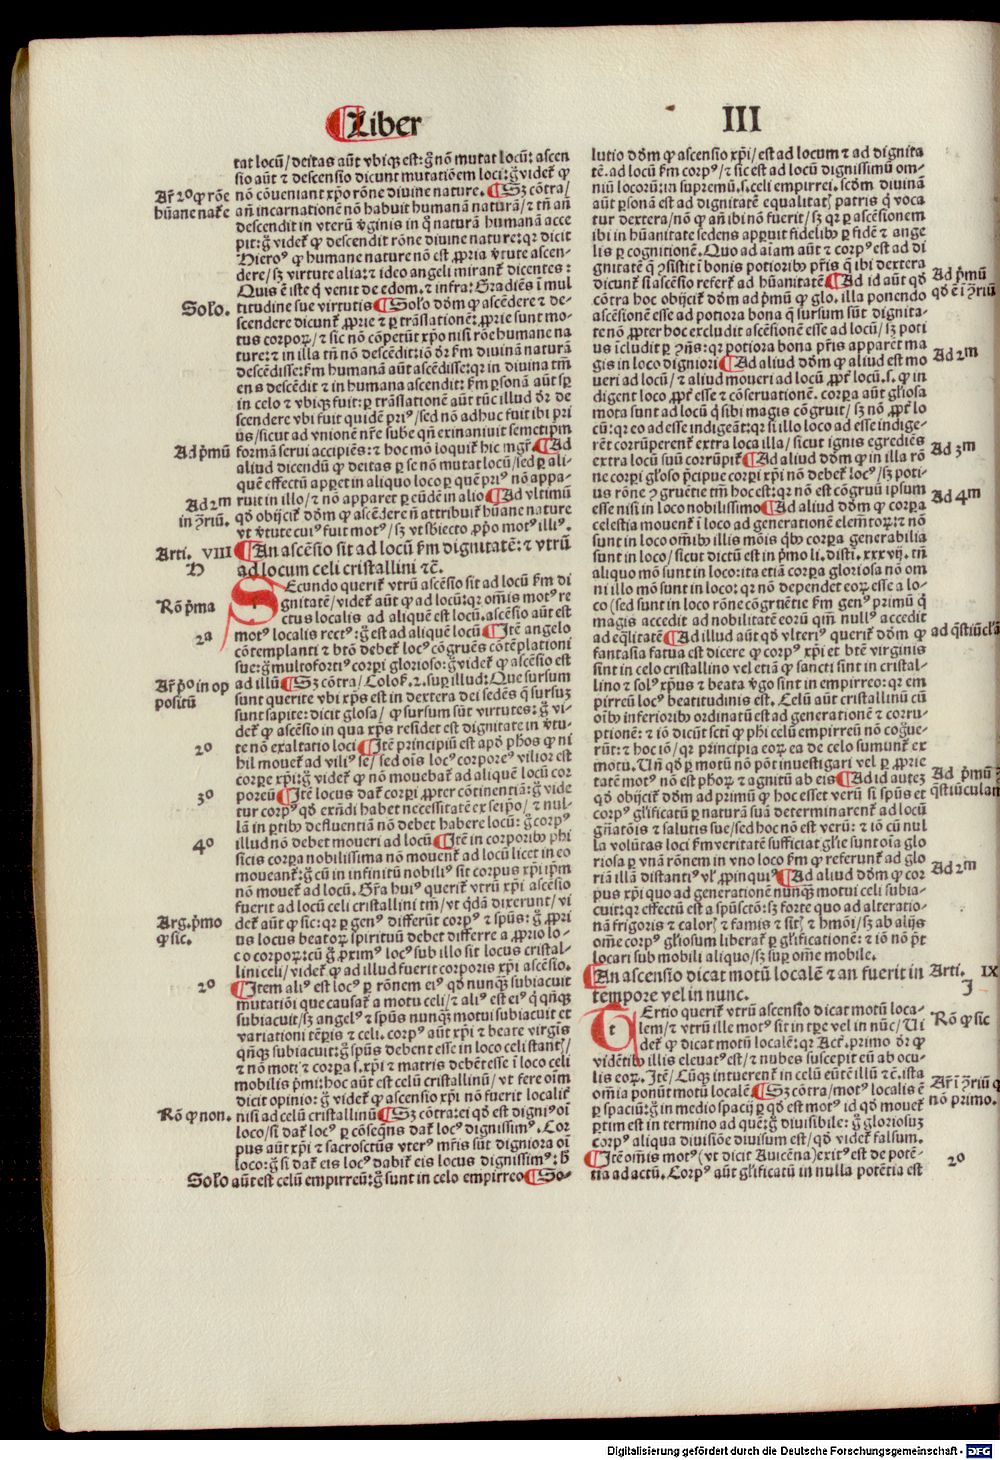 Liber
III
tat locū/deitas aūt vbiqꝫ est: g̊ nō mutat locū: ascen
sio aūt ⁊ descensio dicunt mutatiōem loci: g̊ videt̄ ꝙ
nō cōveniant xp̄o rōne divine nature. ¶ Sꝫ cōtra/
añ incarnationē nō habuit humanā naturā/ ⁊ tñ añ
descendit in vterū v̄ginis in q̄ naturā humanā acce
pit: g̊ videt̄ ꝙ descendit rōne divine nature: qꝛ dicit
Hieroꝰ ꝙ humane nature nō est ꝓpria v̄tute ascen-
dere/ sꝫ virtute alia: ⁊ ideo angeli mirant̄ dicentes:
Quis ē iste q̄ venit de edom. ⁊ infra: Gradiēs ī mul
titudine sue virtutis ¶ Solo dōm ꝙ ascēdere ⁊ de-
scendere dicunt̄ ꝓprie ⁊ ꝑ trāslationē: ꝓprie sunt mo-
tus corpoꝝ/ ⁊ sic nō cōpetūt xp̄o nisi rōe humane na
ture: ⁊ in illa tñ nō descēdit: iō dr̄ km̄ divinā naturā
descēdisse: km̄ humanā aūt ascēdisse: qꝛ in divina tm̄
ens descēdit ⁊ in humana ascendit: km̄ ꝑsonā aūt sꝑ
in celo ⁊ vbiqꝫ fuit: ꝑ trāslationē aūt tūc illud dr̄ de
scendere vbi fuit quidē priꝰ/ sed nō adhuc fuit ibi pri
us/ sicut ad vnionē nr̄e sube qñ exinaniuit semetip̄m
formā serui accipiēs: ⁊ hoc mō loquit̄ hic mgr̄. ¶ Ad
aliud dicendū ꝙ deitas ꝑ se nō mutat locū/ sed ꝑ ali-
quē effectū apꝑet in aliquo loco ꝑ quē priꝰ nō appa-
ruit in illo/ ⁊ nō apparet ꝑ eūdē in alio ¶ Ad vltimū
qd̄ obijcit̄ dōm ꝙ ascēdere ñ attribuit̄ hūane nature
vt v̄tute cuiꝰ fuit motꝰ/ sꝫ vt sb̄iecto ꝓp̄o motꝰ illiꝰ.
¶ An ascēsio sit ad locū km̄ dignitatē: ⁊ vtrū
ad locum celi cristallini ⁊c̄.
Secundo querit̄ vtrū ascēsio sit ad locū km̄ di
gnitatē/ videt̄ aūt ꝙ ad locū: qꝛ om̄is motꝰ re
ctus localis ad aliquē est locū. ascēsio aūt est
motꝰ localis rectꝰ: g̊ est ad aliquē locū ¶ Itē angelo
cōtemplanti ⁊ btō debet̄ locꝰ cōgruēs cōtēplationi
sue: g̊ multofortiꝰ corpi glorioso: g̊ videt̄ ꝙ ascēsio est
ad illū ¶ Sꝫ cōtra/ Coloſ. 2. suꝑ illud: Que sursum
sunt querite vbi xp̄s est in dextera dei sedēs q̄ sursuꝫ
sunt sapite: dicit glosa/ ꝙ sursum sūt virtutes: g̊ vi-
det̄ ꝙ ascēsio in qua xp̄s residet est dignitate in v̄tu-
te nō exaltatio loci ¶ Itē principiū est apd̄ phōs ꝙ ni
hil mouet̄ ad viliꝰ se/ sed oīs locꝰ corporeꝰ vilior est
corꝑe xp̄i: g̊ videt̄ ꝙ nō mouebat̄ ad aliquē locū cor
poreū ¶ Itē locus dat̄ corpi ꝓpter cōtinentiā: g̊ vide
tur corpꝰ qd̄ exñdi habet necessitatē ex seip̄o/ ⁊ nul-
lā in ꝑtibꝰ defluentiā nō debet habere locū: g̊ corpꝰ
illud nō debet moueri ad locū ¶ Itē in corporibꝰ phi
sicis corpa nobilissima nō mouent̄ ad locū licet in eo
moueant̄: g̊ cū in infinitū nobiliꝰ sit corpus xp̄i ip̄m
nō mouet̄ ad locū. Gr̄a huiꝰ querit̄ vtrū xp̄i ascēsio
fuerit ad locū celi cristallini tm̄/ vt q̄dā dixerunt/ vi
det̄ aūt ꝙ sic: qꝛ ꝑ genꝰ differūt corpꝰ ⁊ spūs: g̊ ꝓpri
us locus beatoꝝ spirituū debet differre a ꝓprio lo-
co corpoꝝ: cū g̊ ꝓximꝰ locꝰ sub illo sit locus cristal-
lini celi/ videt̄ ꝙ ad illud fuerit corporis xp̄i ascēsio.
¶ Item aliꝰ est locꝰ ꝑ rōnem eiꝰ qd̄ nunqꝫ subiacuit
mutatiōi que causat̄ a motu celi/ ⁊ aliꝰ est eiꝰ q̄ qñqꝫ
subiacuit/ sꝫ angelꝰ ⁊ spūs nunqꝫ motui subiacuit et
variationi tēꝑis ⁊ celi. corpꝰ aūt xp̄i ⁊ beate virgīs
qñqꝫ subiacuit: g̊ spūs debent esse in loco celi stantꝭ/
⁊ nō moti: ⁊ corpa s. xp̄i ⁊ matris debēt esse ī loco celi
mobilis pr̄mi: hoc aūt est celū cristallinū/ vt fere oīm
dicit opinio: g̊ videt̄ ꝙ ascensio xp̄i nō fuerit localit̄
nisi ad celū cristallinū ¶ Sꝫ cōtra: ei qd̄ est digniꝰ oī
loco/ si dat̄ locꝰ ꝑ cōseqn̄s dat̄ locꝰ dignissimꝰ. Cor
pus aūt xp̄i ⁊ sacrosctūs vterꝰ mr̄is sūt digniora oī
loco: g̊ si dat̄ eis locꝰ dabit̄ eis locus dignissimꝰ: h̄
aūt est celū empirreū: g̊ sunt in celo empirreo ¶ So-
Ar̄ 2ꝰ ꝙ rōe
hūane nat̄e
Solo.
Ad pr̄mū
Ad 2m
in ꝯriū.
Arti. VIII
H
Rō pr̄ma
2a
Ar̄ pr̄o in op
positū
2o
3o
4o
Arg. pr̄mo
ꝙ sic.
2o
Rō ꝙ non.
Solo
lutio dōm ꝙ ascensio xp̄i/ est ad locum ⁊ ad dignita
tē. ad locū km̄ corpꝰ/ ⁊ sic est ad locū dignissimū om-
niū locorū: in supremū. s. celi empirrei. scdm̄ divinā
aūt ꝑsonā est ad dignitatē equalitatꝭ patris q̄ voca
tur dextera/ nō ꝙ añ ibi nō fuerit/ sꝫ qꝛ ꝑ ascēsionem
ibi in hūanitate sedens apꝑuit fidelibꝰ ꝑ fidē ⁊ ange
lis ꝑ cognitionē. Quo ad aīam aūt ⁊ corpꝰ est ad di
gnitatē q̄ ꝯsistit ī bonis potioribꝰ pr̄is q̄ ibi dextera
dicunt̄ si ascēsio refert̄ ad hūanitatē ¶ Ad id aūt qd̄
cōtra hoc obijcit̄ dōm ad pr̄mū ꝙ glo. illa ponendo
ascēsionē esse ad potiora bona q̄ sursum sūt dignita-
te nō ꝓpter hoc excludit ascēsionē esse ad locū/ sꝫ poti
us īcludit ꝑ ꝯñs: qꝛ potiora bona pr̄is apparēt ma
gis in loco digniori ¶ Ad aliud dōm ꝙ aliud est mo
ueri ad locū/ ⁊ aliud moueri ad locū ꝓpt̄ locū. s. ꝙ in
digent loco ꝓpt̄ esse ⁊ cōseruationē. corpa aūt gl̄iosa
mota sunt ad locū q̄ sibi magis cōgruit/ sꝫ nō ꝓpt̄ lo
cū: qꝛ eo ad esse indigeāt: qꝛ si illo loco ad esse indige-
rēt corrūperent̄ extra loca illa/ sicut ignis egrediēs
extra locū suū corrūpit̄ ¶ Ad aliud dōm ꝙ in illa rō
ne corpi gloso pr̄cipue corpi xp̄i nō debet̄ locꝰ/ sꝫ poti-
us rōne ꝯgruētie tm̄ hoc est: qꝛ nō est cōgruū ipsum
esse nisi in loco nobilissimo ¶ Ad aliud dōm ꝙ corpa
celestia mouent̄ ī loco ad generationē elem̄toꝝ: ⁊ nō
sunt in loco om̄ibꝰ illis mōis q̄bꝰ corpa generabilia
sunt in loco/ sicut dictū est in pr̄mo li. disti. xxxvij. tñ
aliquo mō sunt in loco: ita etiā corpa gloriosa nō om
ni illo mō sunt in loco: qꝛ nō dependet eoꝝ esse a lo-
co (sed sunt in loco rōne cōgruētie km̄ genꝰ primū q̄
magis accedit ad nobilitatē eorū qm̄ nullꝰ accedit
ad eq̄litatē ¶ Ad illud aūt qd̄ vlteriꝰ querit̄ dōm ꝙ
fantasia fatua est dicere ꝙ corpꝰ xp̄i et btē virginis
sint in celo cristallino vel etiā ꝙ sancti sint in cristal-
lino ⁊ solꝰ xp̄us ⁊ beata v̄go sint in empirreo: qꝛ em
pirreū locꝰ beatitudinis est. Celū aūt cristallinū cū
oībꝰ inferioribꝰ ordinatū est ad generationē ⁊ corru-
ptionē: ⁊ iō dicūt scti ꝙ phi celū empirreū nō cogue-
rūt: ⁊ hoc iō/ qꝛ principia eoꝝ ea de celo sumunt̄ ex
motu. Uñ qd̄ ꝑ motū nō pōt inuestigari vel ꝑ ꝓprie
tatē motꝰ nō est phoꝝ ⁊ agnitū ab eis ¶ Ad id auteꝫ
qd̄ obijcit̄ dōm ad primū ꝙ hoc esset verū si spūs et
corpꝰ gl̄ificatū ꝑ naturā suā determinarent̄ ad locū
gñatōis ⁊ salutis sue/ sed hoc nō est verū: ⁊ iō cū nul
la volūtas loci km̄ veritatē sufficiat gl̄ie sunt oīa glo
riosa ꝑ vnā rōnem in vno loco km̄ ꝙ referunt̄ ad glo
riā illā distanti vl̓ ꝓpinquiꝰ ¶ Ad aliud dōm ꝙ cor
pus xp̄i quo ad generationē nunqꝫ motui celi subia-
cuit: qꝛ effectū est a spūsctō: sꝫ forte quo ad alteratio-
nā frigoris ⁊ calorꝭ ⁊ famis ⁊ sitꝭ ⁊ hmōi/ sꝫ ab alijs
om̄e corpꝰ gl̄iosum liberat̄ ꝑ gl̄ificationē: ⁊ iō nō pt̄
locari sub mobili aliquo/ sꝫ suꝑ om̄e mobile.
¶ An ascensio dicat motū localē ⁊ an fuerit in
tempore vel in nunc.
Tertio querit̄ vtrū ascensio dicat motū loca-
lem/ ⁊ vtrū ille motꝰ sit in tꝑe vel in nūc/ Ui
det̄ ꝙ dicat motū localē: qꝛ Act̄. primo dr̄ ꝙ
vidētibꝰ illis eleuatꝰ est/ ⁊ nubes suscepit eū ab ocu-
lis eoꝝ. Itē/ Cūqꝫ intuerent̄ in celū eūtē illū ⁊c̄. ista
om̄ia ponūt motū localē. ¶ Sꝫ cōtra/ motꝰ localis ē
ꝑ spaciū: g̊ in medio spacij ꝑ qd̄ est motꝰ id qd̄ mouet̄
ꝑtim est in termino ad quē: g̊ diuisibile: g̊ gloriosuꝫ
corpꝰ aliqua diuisiōe diuisum est/ qd̄ videt̄ falsum.
¶ Itē om̄is motꝰ (vt dicit Auicēna) exitꝰ est de potē-
tia ad actū. Corpꝰ aūt gl̄ificatū in nulla potētia est
Ad pr̄mū
qd̄ ē ī ꝯriū
Ad 2m
Ad 3m
Ad 4m
ad q̄stiūclā
Ad pr̄mū
q̄stiunculam
Ad 2m
Arti. IX
J
Rō ꝙ sic
Ar̄ ī ꝯriū
nō primo.
2o
Digitalisierung gefördert durch die Deutsche Forschungsgemeinschaft - DFG